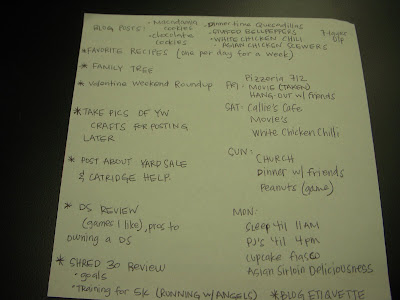 BLOG POSTS:
• MACADAMIA COOKIES
• chocolate cookies
• Summertime Quesadillas
• STUFFED BELLPEPPERS
• WHITE CHICKEN CHILI
• ASIAN CHICKEN SKEWERS
7 layer Dip
* FAVORITE RECIPES (one per day for a week)
* FAMILY TREE
* Valentine Weekend Roundup
FRI: Pizzeria 712
MOVIE (TAKEN)
HANG-OUT w/ friends
SAT: Callie's Cafe
Movie's
White Chicken Chilli
SUN:
CHURCH
Dinner w/ friends
Peanuts (game)
MON:
Sleep til 11AM
PJ's til 4pm
cupcake fiasco
Asian Sirloin Deliciousness
* TAKE PICS OF YW
CRAFTS FOR POSTING
LATER
* POST ABOUT YARD SALE
& CATRIDGE HELP.
* DS REVIEW
(games I like), pros to
owning a DS
* SHRED 30 REVIEW
• goals
• Training for 5k (RUNNING w/ ANGELS)
* BLOG ETIQUETTE